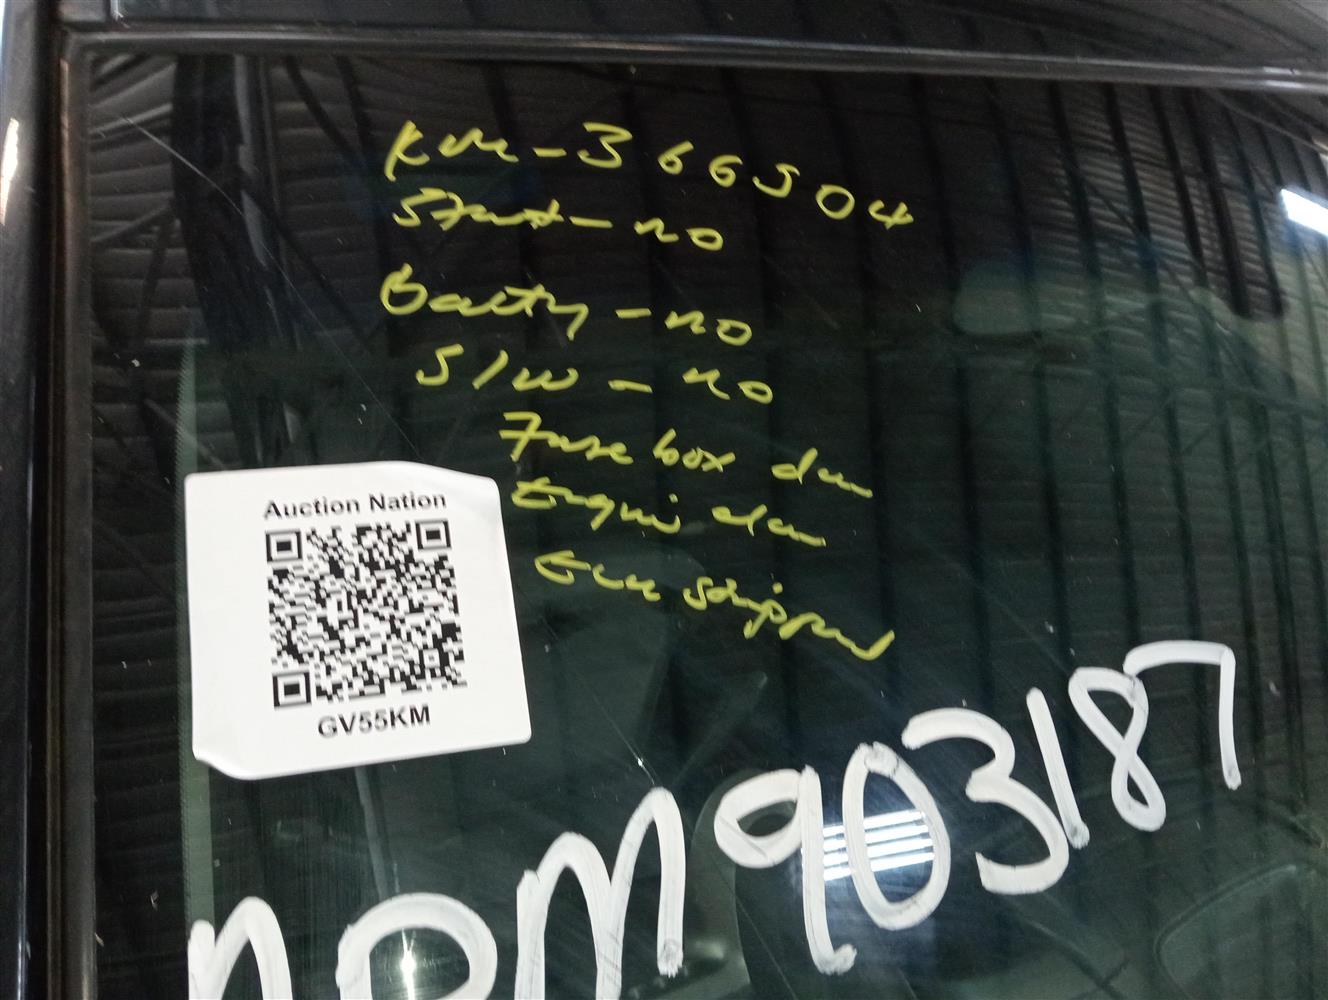 Km - 366504
Start - no
Batty - no
S/W - no
Fuse box dm
Engin dm
stripped
Auction Nation
GV55KM
M903187